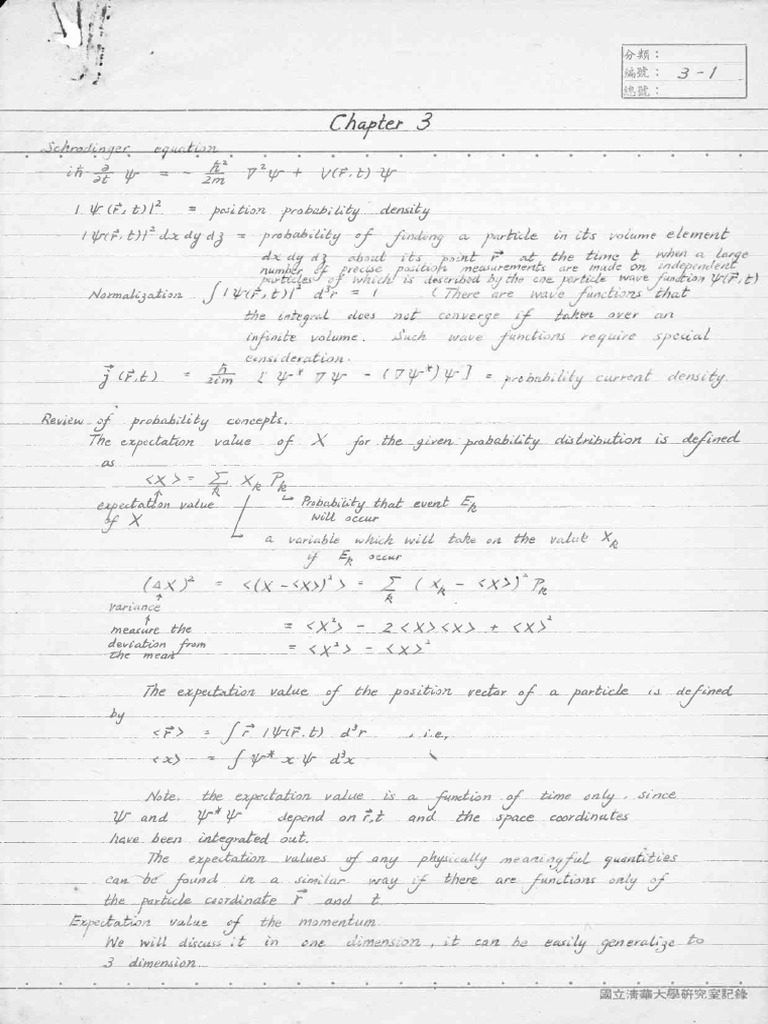 分類：
編號： 3-1
總號：
Chapter 3
Schrodinger equation
iħ ∂/∂t ψ = - ħ²/2m ∇²ψ + V(r⃗,t) ψ
|ψ(r⃗,t)|² = position probability density
|ψ(r⃗,t)|² dx dy dz = probability of finding a particle in its volume element
dx dy dz about its point r⃗ at the time t when a large
number of precise position measurements are made on independent
particles of which is described by the one particle wave function ψ(r⃗,t)
Normalization ∫|ψ(r⃗,t)|² d³r = 1 (There are wave functions that
the integral does not converge if taken over an
infinite volume. Such wave functions require special
consideration.
j⃗(r⃗,t) = ħ/2im [ψ* ∇ψ - (∇ψ*)ψ] = probability current density.
Review of probability concepts.
The expectation value of X for the given probability distribution is defined
as
<X> = Σ_k X_k P_k
expectation value Probability that event E_k
of X will occur
a variable which will take on the value X_k
if E_k occur
(ΔX)² = <(X-<X>)²> = Σ_k (X_k - <X>)² P_k
variance
measure the = <X²> - 2<X><X> + <X>²
deviation from = <X²> - <X>²
the mean
The expectation value of the position vector of a particle is defined
by
<r⃗> = ∫ r⃗ |ψ(r⃗,t) d³r , i.e.,
<x> = ∫ ψ* x ψ d³x
Note. the expectation value is a function of time only, since
ψ and ψ*ψ depend on r⃗,t and the space coordinates
have been integrated out.
The expectation values of any physically meaningful quantities
can be found in a similar way if there are functions only of
the particle coordinate r⃗ and t.
Expectation value of the momentum.
We will discuss it in one dimension, it can be easily generalize to
3 dimension
國立清華大學研究室記錄